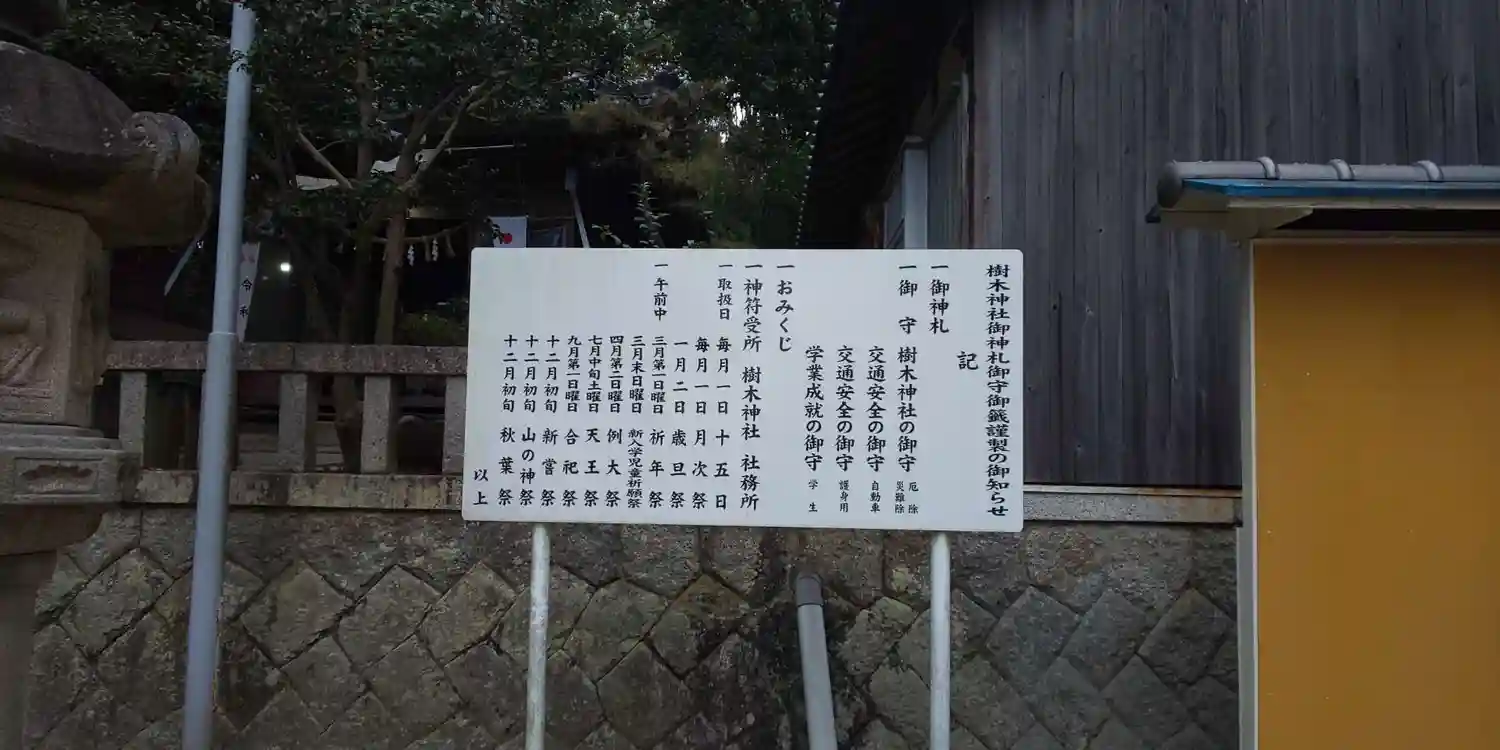 樹木神社御神札御守御籤謹製の御知らせ
記
一御神札
一御 守 樹木神社の御守 厄除 災難除
交通安全の御守 自動車
交通安全の御守 護身用
学業成就の御守 学生
一おみくじ
一神符受所 樹木神社 社務所
一取扱日 毎月一日 十五日
毎月一日 月次祭
一月二日 歳旦祭
一午前中 三月第一日曜日 祈年祭
三月末日曜日 新入学児童祈願祭
四月第二日曜日 例大祭
七月中旬土曜日 天王祭
九月第一日曜日 合祀祭
十二月初旬 新嘗祭
十二月初旬 山の神祭
十二月初旬 秋葉祭
以上
令和